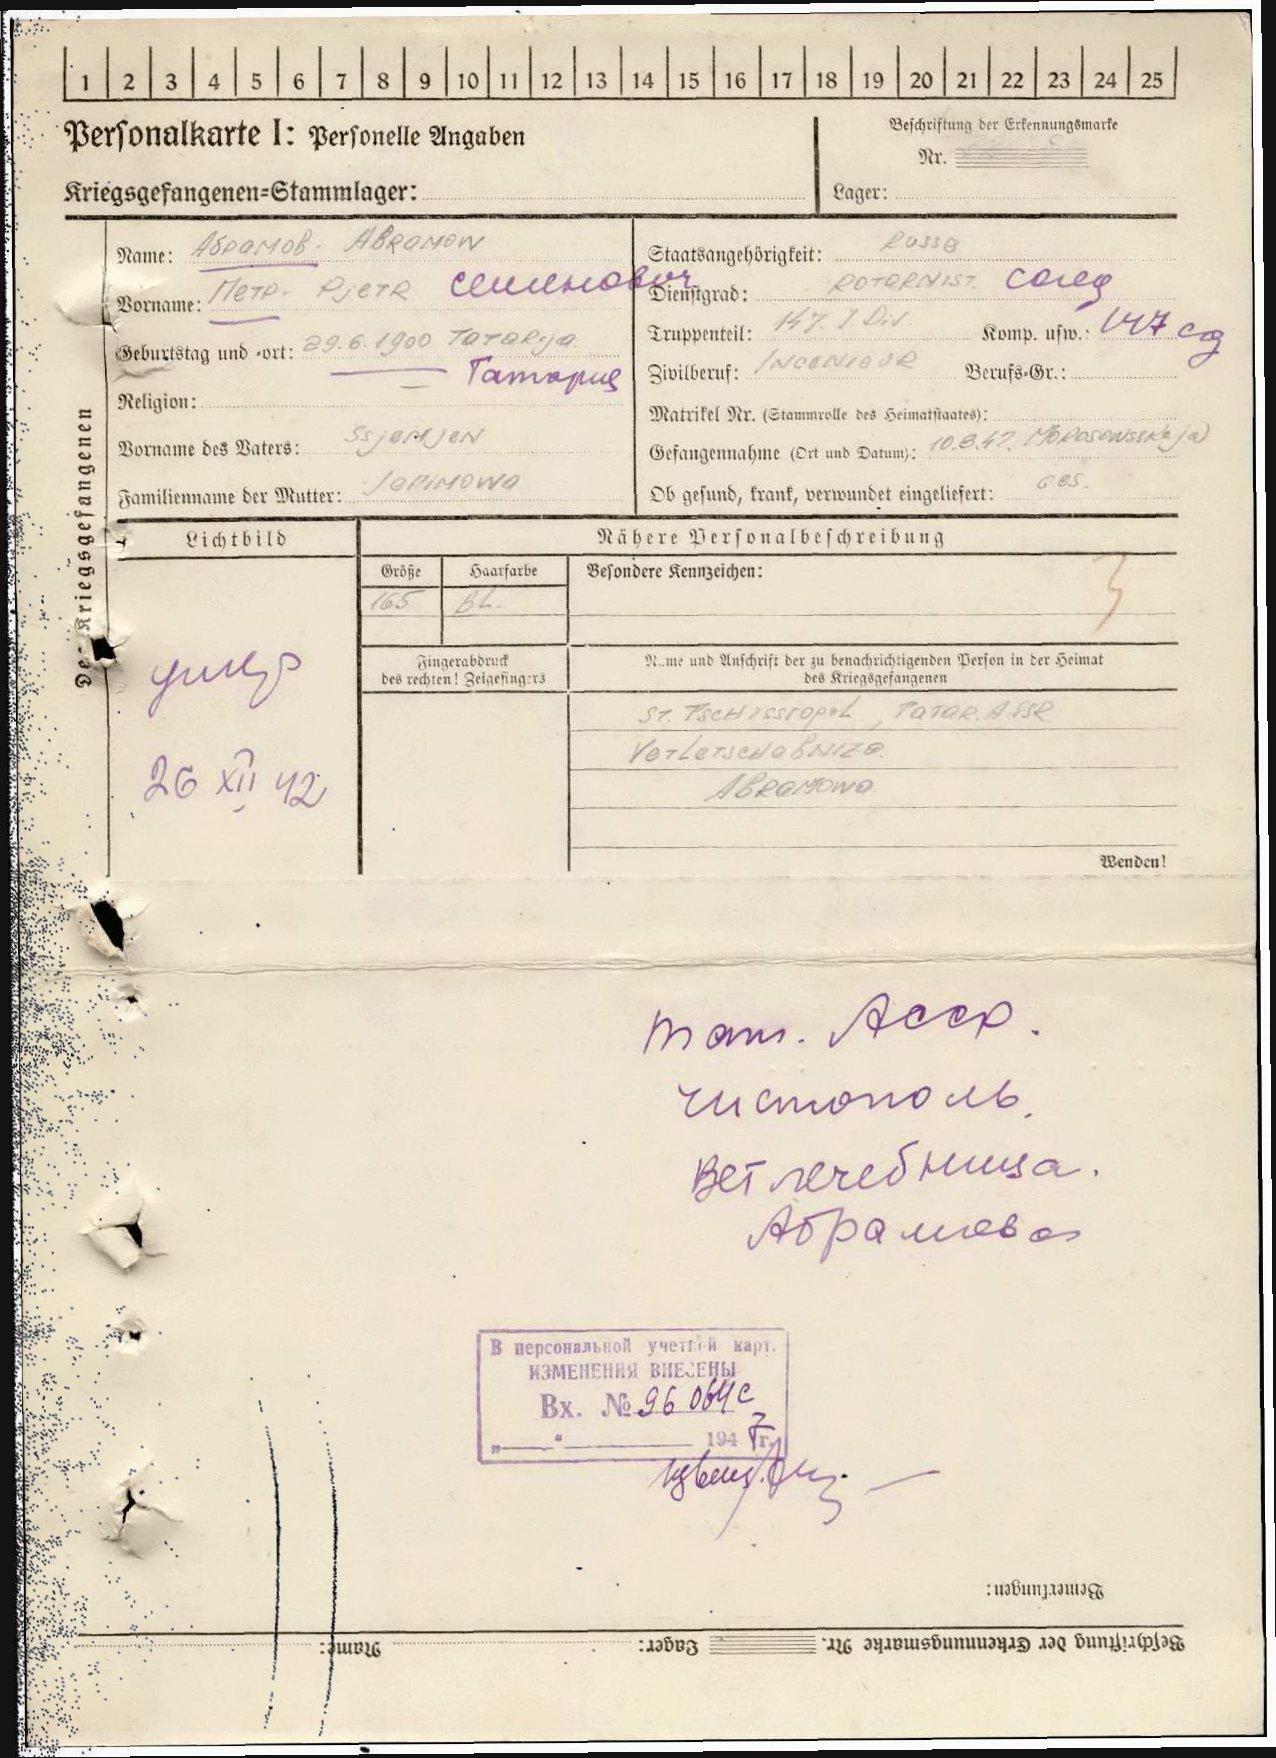 1 2 3 4 5 6 7 8 9 10 11 12 13 14 15 16 17 18 19 20 21 22 23 24 25
Personalkarte I: Personelle Angaben
Beschriftung der Erkennungsmarke
Nr.
Kriegsgefangenen-Stammlager:
Lager:
Des Kriegsgefangenen
Name: Абрамов. ABRAMOW
Vorname: Петр. PJETR Семенович
Geburtstag und -ort: 29.6.1900 TATARIJA
Татария
Religion:
Vorname des Vaters: SSJEMJEN
Familienname der Mutter:
Staatsangehörigkeit: RUSSE
Dienstgrad: ROTARMIST. солд
Truppenteil: 147. I DIV Komp. usw.: 147 сд
Zivilberuf: INGENIEUR Berufs-Gr.:
Matrikel Nr. (Stammrolle des Heimatstaates):
Gefangennahme (Ort und Datum): 10.8.42. MOROSOWSSKAJA
Ob gesund, krank, verwundet eingeliefert: GES.
Lichtbild
умер
26 XII 42
Nähere Personalbeschreibung
Größe Haarfarbe Besondere Kennzeichen:
165 BL.
Fingerabdruck
des rechten! Zeigefingers
Name und Anschrift der zu benachrichtigenden Person in der Heimat
des Kriegsgefangenen
ST. TSCHISSTOPOL, TATAR. ASSR
WETLETSCHEBNIZA
ABRAMOWA.
Wenden!
Тат. АССР.
Чистополь.
Ветлечебница.
Абрамова
В персональной учетной карт.
ИЗМЕНЕНИЯ ВНЕСЕНЫ
Вх. № 96064с
„___“ ______ 1947 г.
Bemerkungen:
Beschriftung der Erkennungsmarke Nr. Lager: Name: